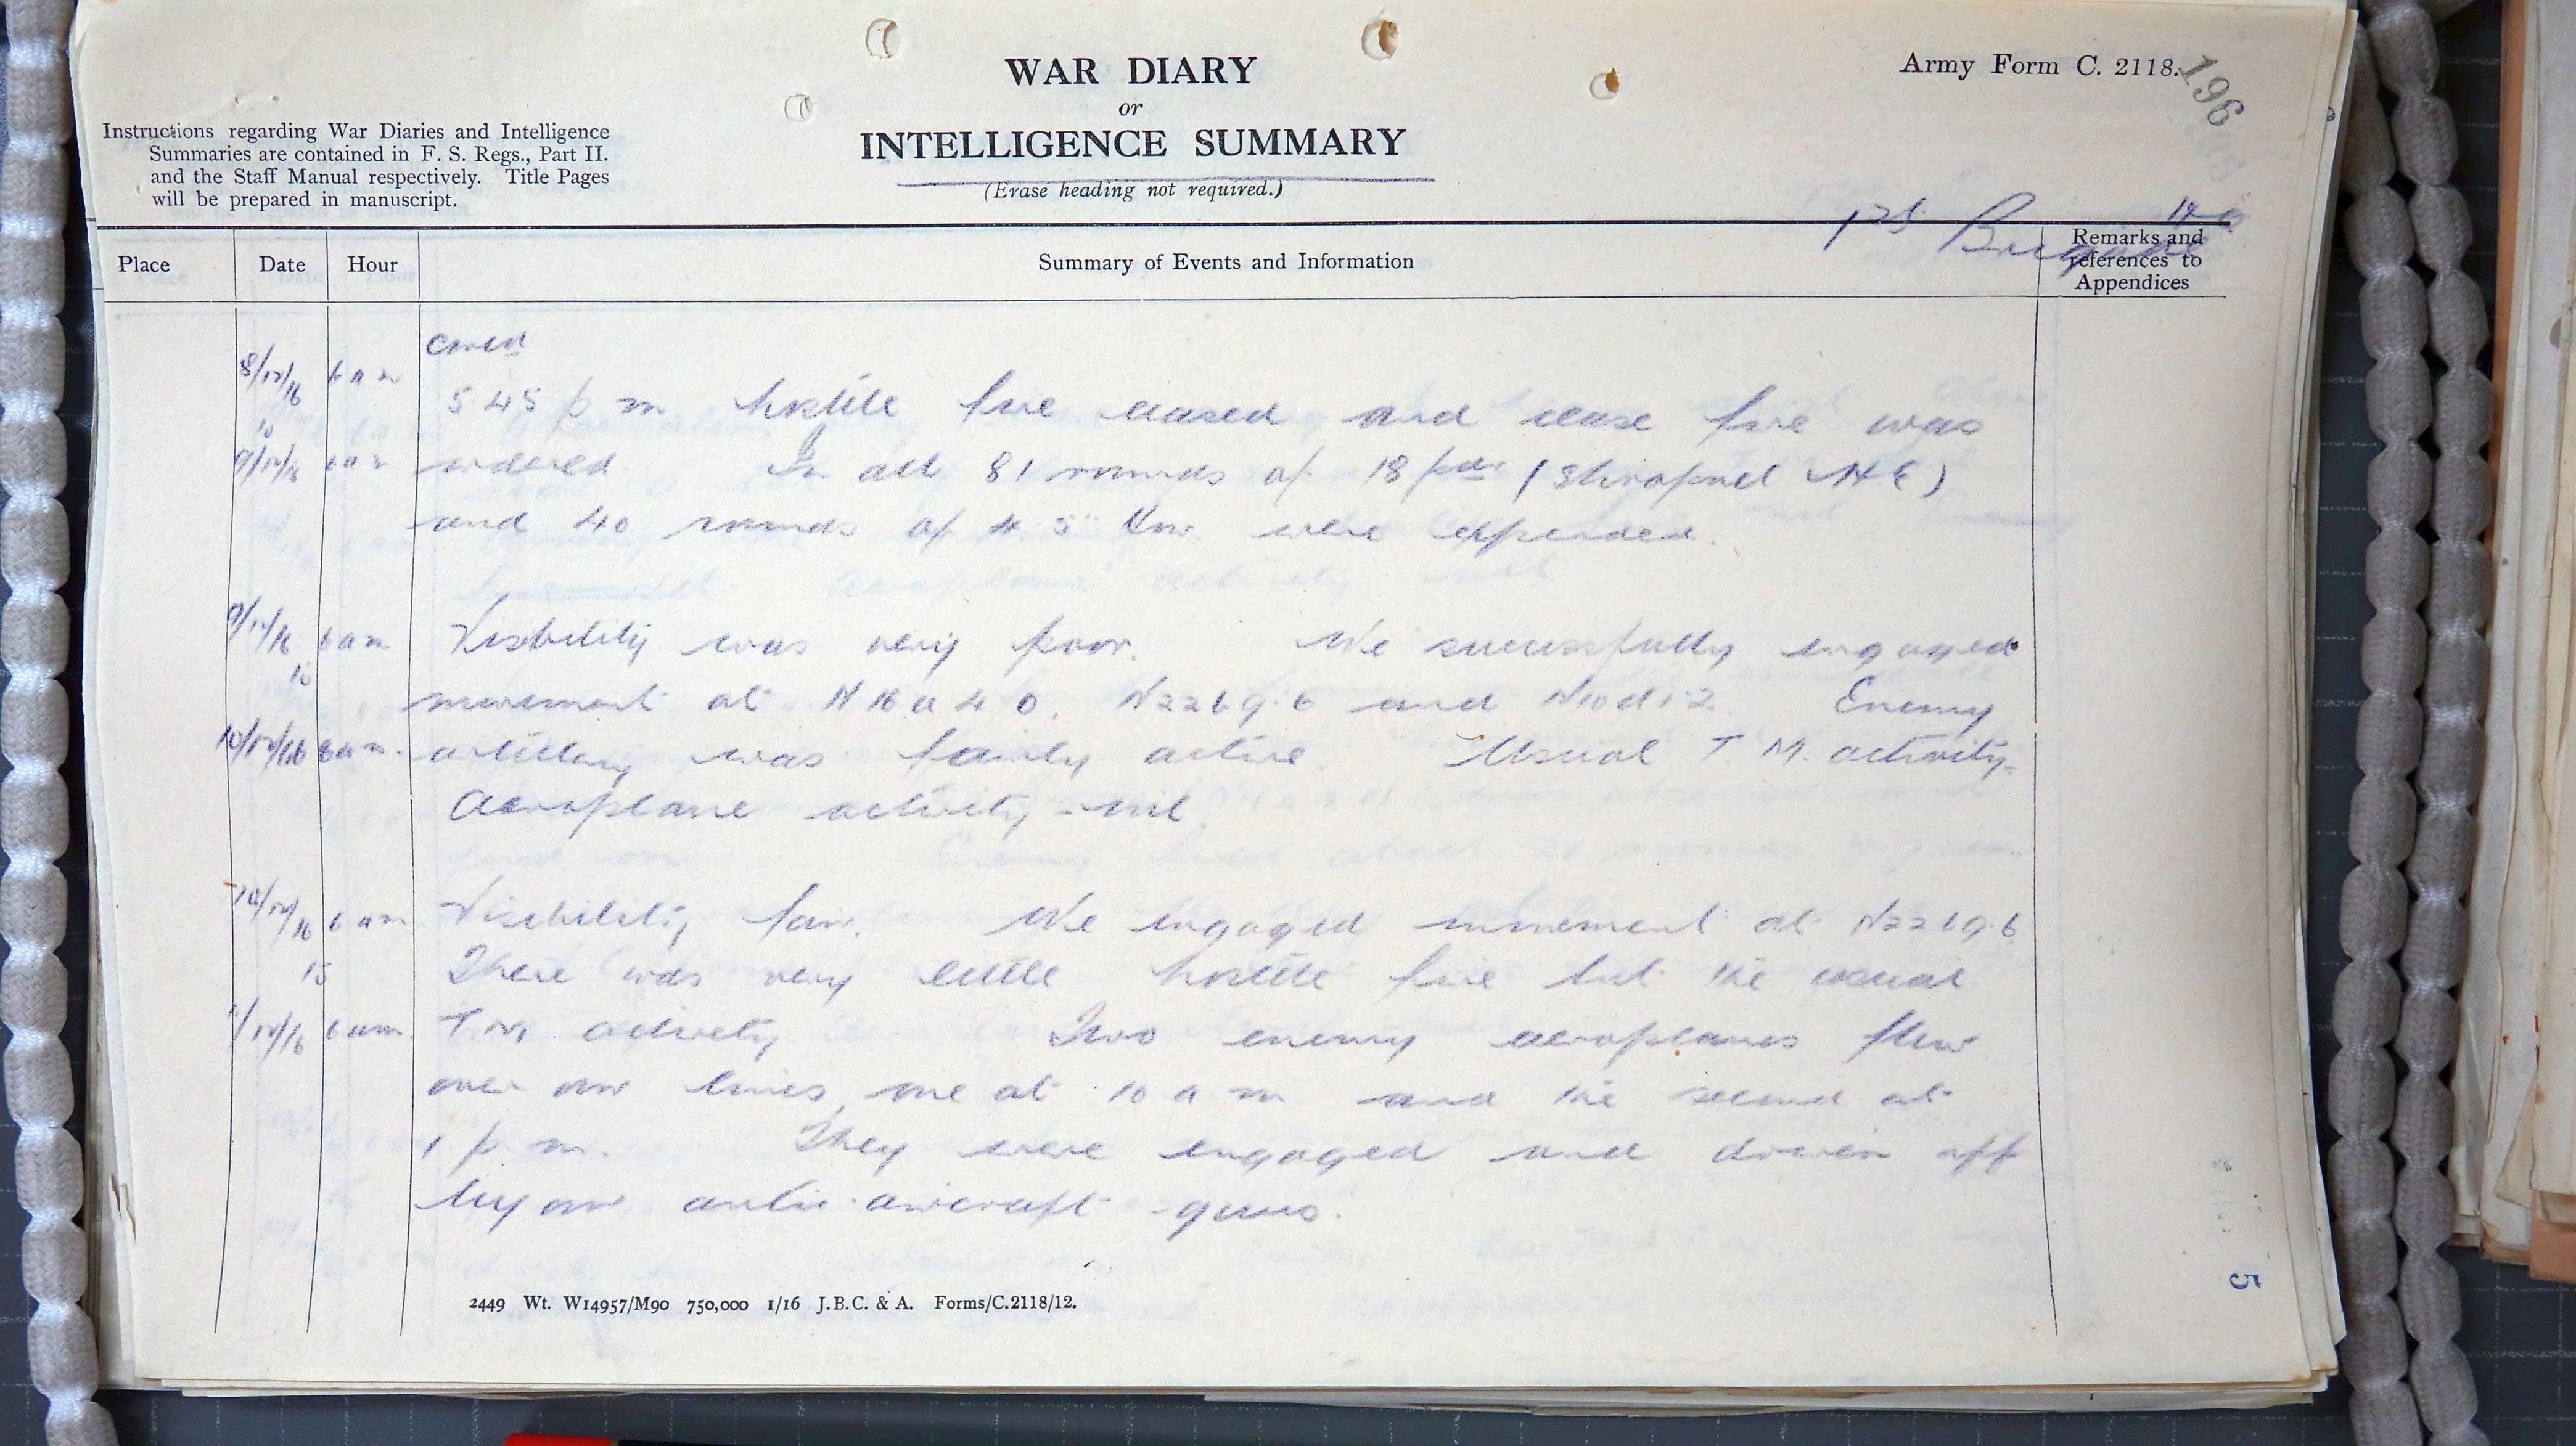 WAR DIARY
or
INTELLIGENCE SUMMARY
(Erase heading not required.)
Army Form C. 2118.
196
Instructions regarding War Diaries and Intelligence
Summaries are contained in F. S. Regs., Part II.
and the Staff Manual respectively. Title Pages
will be prepared in manuscript.
1st Brigade
Place Date Hour Summary of Events and Information Remarks and references to Appendices
8/12/16 6 a m
5 45 p m hostile fire ceased and cease fire was
to
9/12/16 6 a m ordered In all 81 rounds of 18 pdr (Shrapnel & H E)
and 40 rounds of 4.5" How. were expended.
9/12/16 6 a m Visbility was very poor. We sucessfully engaged
to
movement at N 16 a 4 0, N22 b 9.6 and N10 d 1.2 Enemy
10/12/16 6 a m. artillery was fairly active Usual T. M. activity.
Aeroplane activity - nil.
10/12/16 6 a m Visibility fair. We engaged movement at N22 b 9.6
to
There was very little hostile fire but the usual
11/12/16 6 a m. T M activity Two enemy aeroplanes flew
over our lines, one at 10 a m and the second at
1 p m. They were engaged and driven off
by our antie-aircraft guns.
2449 Wt. W14957/M90 750,000 1/16 J.B.C. & A. Forms/C.2118/12.
5